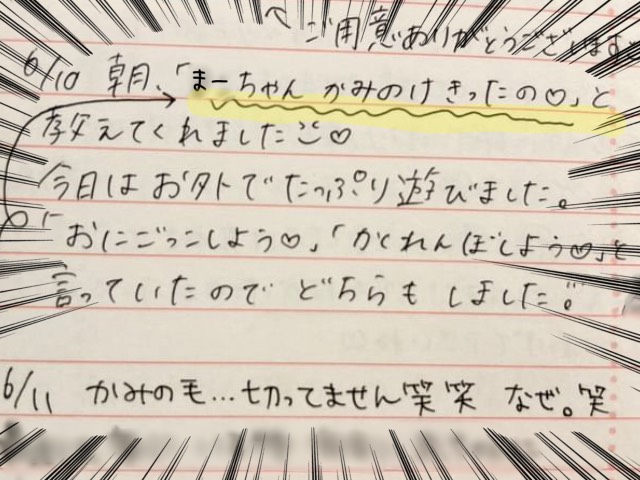 ご用意ありがとうございます
6/10 朝、「まーちゃん かみのけきったの♡」と
教えてくれました♡
今日は お外でたっぷり遊びました。
「おにごっこしよう♡」「かくれんぼしよう♡」と
言っていたので どちらも しました。
6/11 かみの毛…切ってません笑笑 なぜ。笑